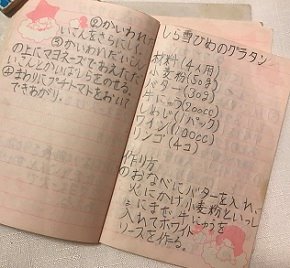 しら雪ひめのグラタン
材料(4人用)
小麦粉(50g)
バター(30g)
牛にゅう(200cc)
しめじ(1パック)
ワイン(100cc)
リンゴ(4コ)
作り方
①おなべにバターを入れ、
火にかけ小麦粉といっし
ょにまぜ、牛にゅうを
入れてホワイト
ソースを作る。
②かいわれだ
いこんをさらにしく。
③かいわれだいこん
の上にマヨネーズであえた
④まわりにプチトマトをおいて
できあがり。